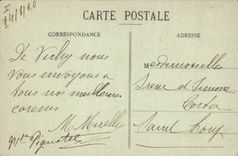 24/8/20
CARTE POSTALE
CORRESPONDANCE
ADRESSE
De Vichy nous
vous envoyons
tous nos meilleures
caresses
M. Marcelle
Mesdemoiselle
Irène et Simone
Saint Louis